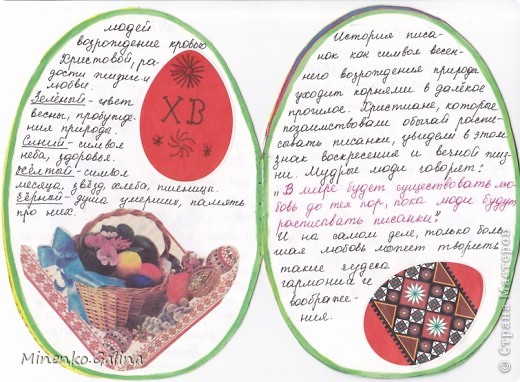 людей
возрождение кровью
Христовой, ра-
дости жизни и
любви.
Зелёный - цвет
весны, пробужде-
ния природы.
Синий - символ
неба, здоровья.
Жёлтый - символ
месяца, звёзд, хлеба, пшеницы.
Чёрный - душа умерших, память
про них.
ХВ
Minenko Galina
История писа-
нок как символ весен-
него возрождения природы
уходит корнями в далёкое
прошлое. Христиане, которые
позаимствовали обычай распи-
сывать писанки, увидели в этом
знак воскресения и вечной жиз-
ни. Мудрые люди говорят:
"В мире будет существовать лю-
бовь до тех пор, пока люди будут
расписывать писанки."
И на самом деле, только боль-
шая любовь может творить
такие чудеса
гармонии и
воображе-
ния.
© Страна Мастеров